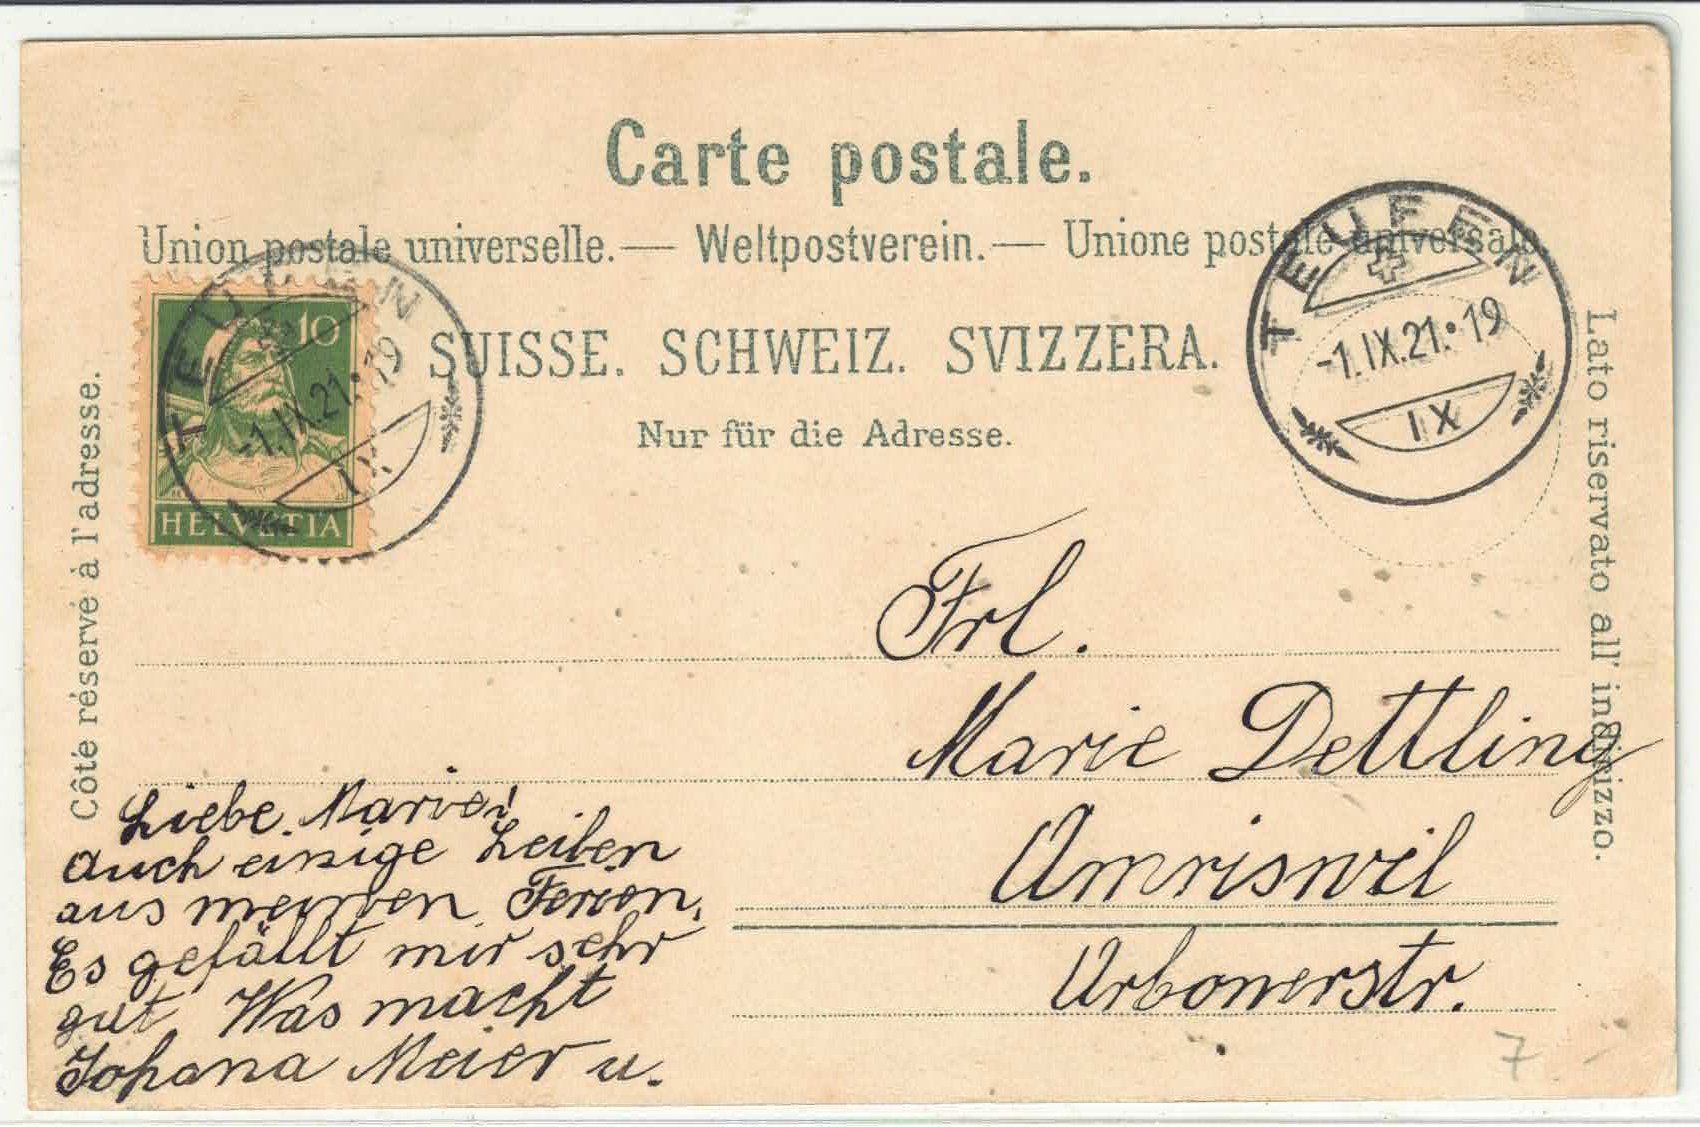 Carte postale.
Union postale universelle. — Weltpostverein. — Unione postale universale.
SUISSE. SCHWEIZ. SVIZZERA.
Nur für die Adresse.
Côté réservé à l'adresse.
Lato riservato all' indirizzo.
10
HELVETIA
TEUFEN
-1.IX.21.19
IX
TEUFEN
-1.IX.21.19
IX
Frl.
Marie Dettling
Amriswil
Arbonerstr.
Liebe Marie!
Auch einige Zeilen
aus meinen Ferien.
Es gefällt mir sehr
gut. Was macht
Johana Meier u.
7